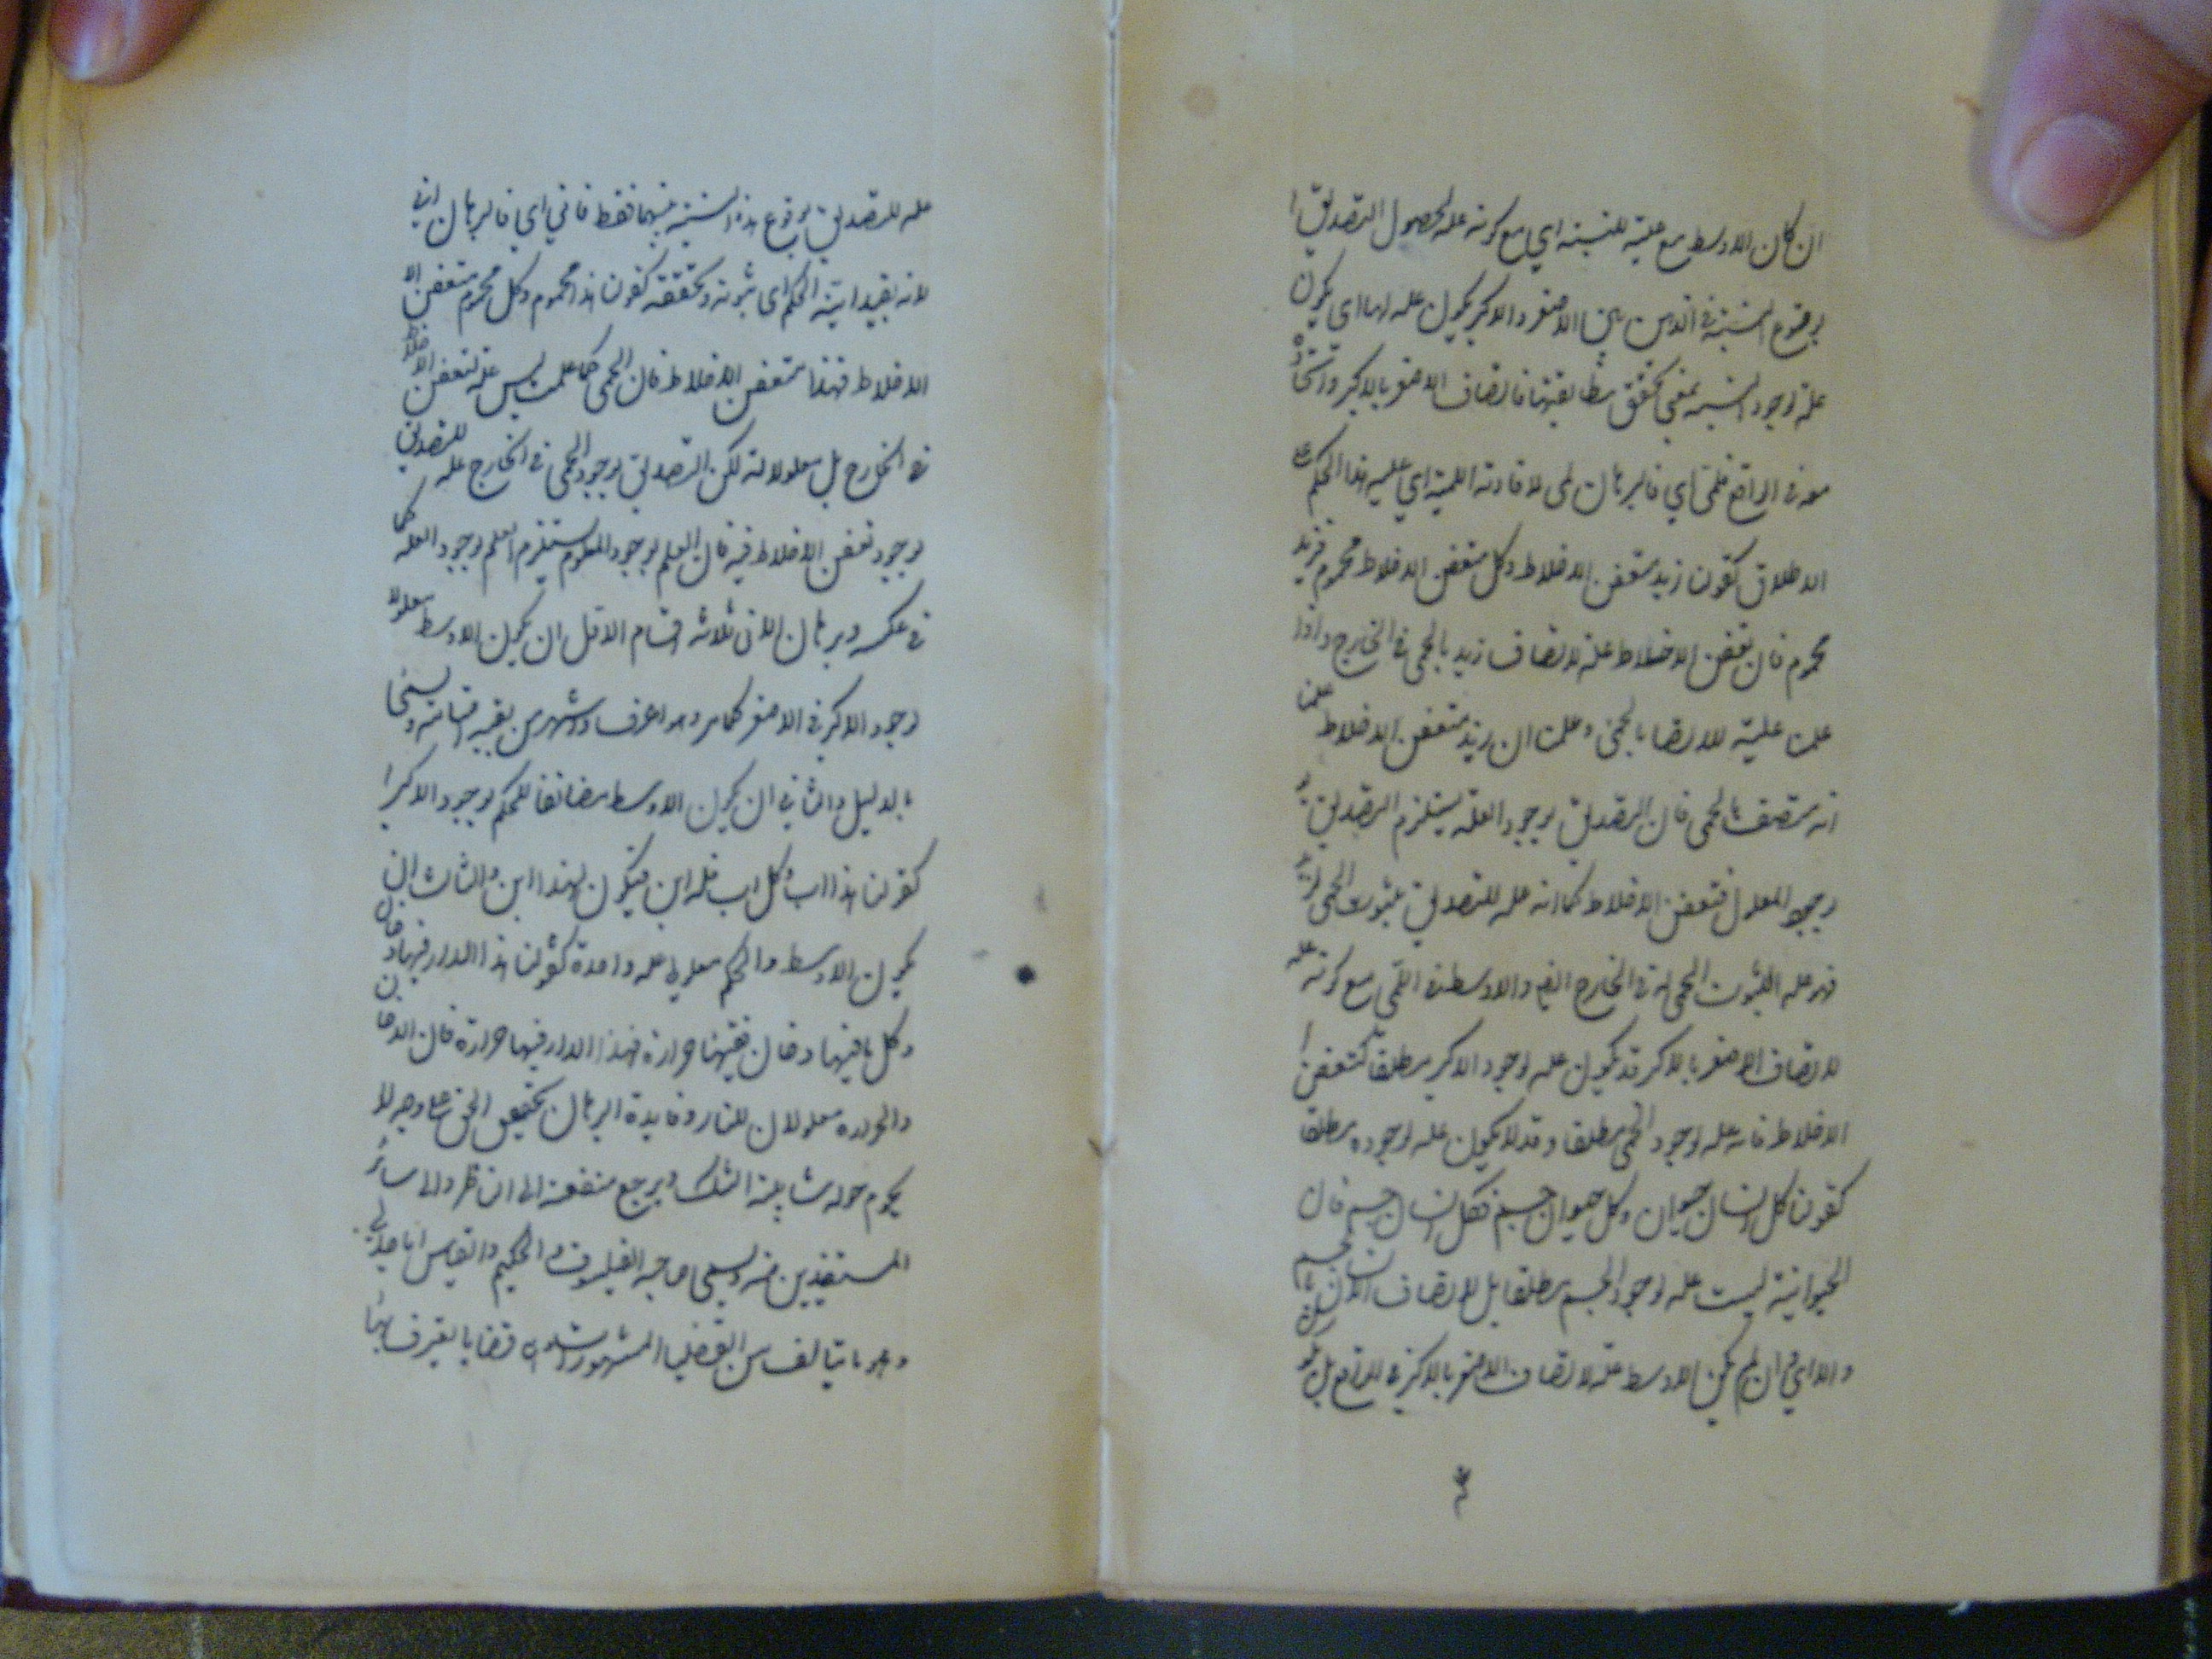 ان كان الاوسط مع علية للنسبة اي مع كونه علة لحصول التصديق ا
بوقوع النسبة في الذهن بين الاصغر والاكبر يكون علة لها اي يكون
علة لوجود النسبة بمعنى تحقق مطابقتها فاتصاف الاصغر بالاكبر واتحاده
معه في الواقع فلمي اي فالبرهان لمي لافادته اللمية اي علية هذا الحكم على
الاطلاق كقولنا زيد متعفن الاخلاط وكل متعفن الاخلاط محموم فزيد
محموم فان تعفن الاخلاط علة لاتصاف زيد بالحمى في الخارج واذا
علمت علية للاتصاف بالحمى وعلمت ان زيد متعفن الاخلاط علمت
انه متصف بالحمى فان التصديق بوجود العلة يستلزم التصديق بو
وجود المعلول فتعفن الاخلاط كما انه علة للتصديق بثبوت الحمى لزيد
فهو علة لثبوت الحمى له في الخارج ايضا والاوسط في اللمي مع كونه علة
لاتصاف الاصغر بالاكبر قد يكون علة لوجود الاكبر مطلقا كتعفن ا
الاخلاط فانه علة لوجود الحمى مطلقا وقد لا يكون علة لوجوده مطلقا
كقولنا كل انسان حيوان وكل حيوان جسم فكل انسان جسم فان
الحيوانية ليست علة لوجود الجسم مطلقا بل لاتصاف الانسان بالجسم
والا اي وان لم يكن الاوسط علة لاتصاف الاصغر بالاكبر في الواقع بل يكون
علة للتصديق بوقوع هذه النسبة بينهما فقط فاني اي فالبرهان اني
لانه يفيد انية الحكم اي ثبوته وتحققه كقولنا هذا محموم وكل محموم متعفن الا
الاخلاط فهذا متعفن الاخلاط فان الحمى كما علمت ليس علة لتعفن الاخلاط
في الخارج بل معلولا له لكن التصديق بوجود الحمى في الخارج علة للتصديق
بوجود تعفن الاخلاط فيه فان العلم بوجود المعلوم يستلزم العلم بوجود العلة كما
في عكسه وبرهان الاني ثلاثة اقسام الاول ان يكون الاوسط معلولا
لوجود الاكبر في الاصغر كما مر وهو اعرف واشهر من بقية اقسامه ويسمى
بالدليل والثاني ان يكون الاوسط مضائفا للحكم بوجود الاكبر ا
كقولنا هذا اب وكل اب فله ابن فيكون لهذا ابن والثالث ان
يكون الاوسط والحكم معلولي علة واحدة كقولنا هذا الدار فيها دخان
وكل ما فيها دخان ففيها حرارة فهذا الدار فيها حرارة فان الدخان
والحرارة معلولان للنار وفايدة البرهان تحقيق الحق على وجه لا
يحوم حوله شايبة الشك ويرجع منفعته الى الناظر والى سائر
المستفيدين منه ويسمى صاحبه الفيلسوف والحكيم والقياس اما جدلي
وهو ما يتالف من القضايا المشهورات وهي قضايا يعترف بها